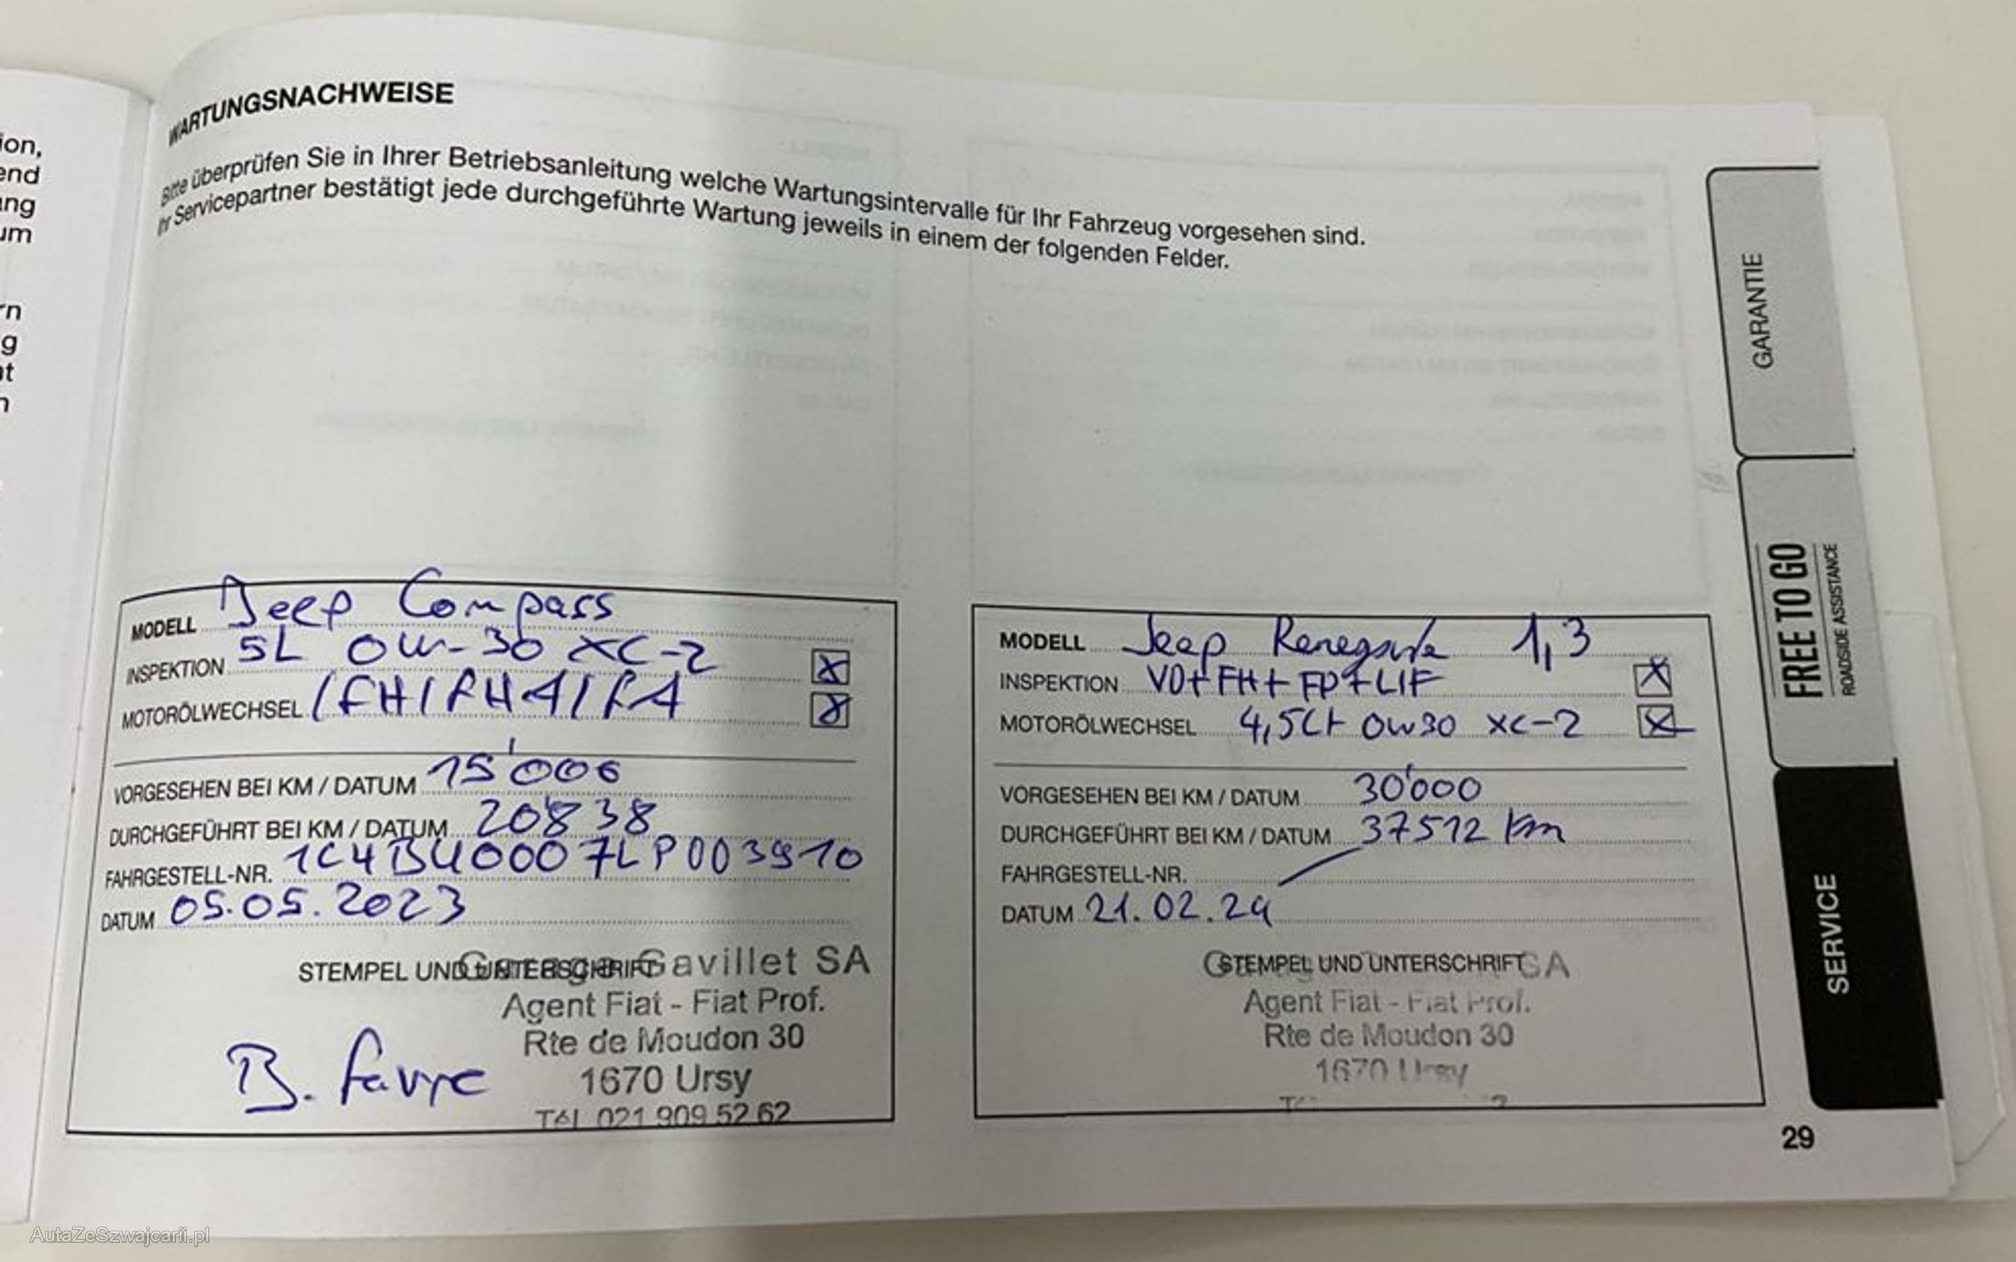 ion,
end
ung
um
rn
g
t
n
WARTUNGSNACHWEISE
Bitte überprüfen Sie in Ihrer Betriebsanleitung welche Wartungsintervalle für Ihr Fahrzeug vorgesehen sind.
Ihr Servicepartner bestätigt jede durchgeführte Wartung jeweils in einem der folgenden Felder.
MODELL Jeep Compass
INSPEKTION 5L 0W-30 XC-2 X
MOTORÖLWECHSEL X
VORGESEHEN BEI KM / DATUM 15'000
DURCHGEFÜHRT BEI KM / DATUM 20'838
FAHRGESTELL-NR. 1C4BU0007LP003910
DATUM 05.05.2023
STEMPEL UND UNTERSCHRIFT
Garage Gavillet SA
Agent Fiat - Fiat Prof.
Rte de Moudon 30
1670 Ursy
Tél 021 909 52 62
B. Favre
MODELL Jeep Renegade 1,3
INSPEKTION VO+FH+FP+LIF X
MOTORÖLWECHSEL 4,5Lt 0W30 XC-2 X
VORGESEHEN BEI KM / DATUM 30'000
DURCHGEFÜHRT BEI KM / DATUM 37512 km
FAHRGESTELL-NR.
DATUM 21.02.24
STEMPEL UND UNTERSCHRIFT
SA
Agent Fiat - Fiat Prof.
Rte de Moudon 30
1670 Ursy
GARANTIE
FREE TO GO
ROADSIDE ASSISTANCE
SERVICE
29
AutaZeSzwajcarii.pl